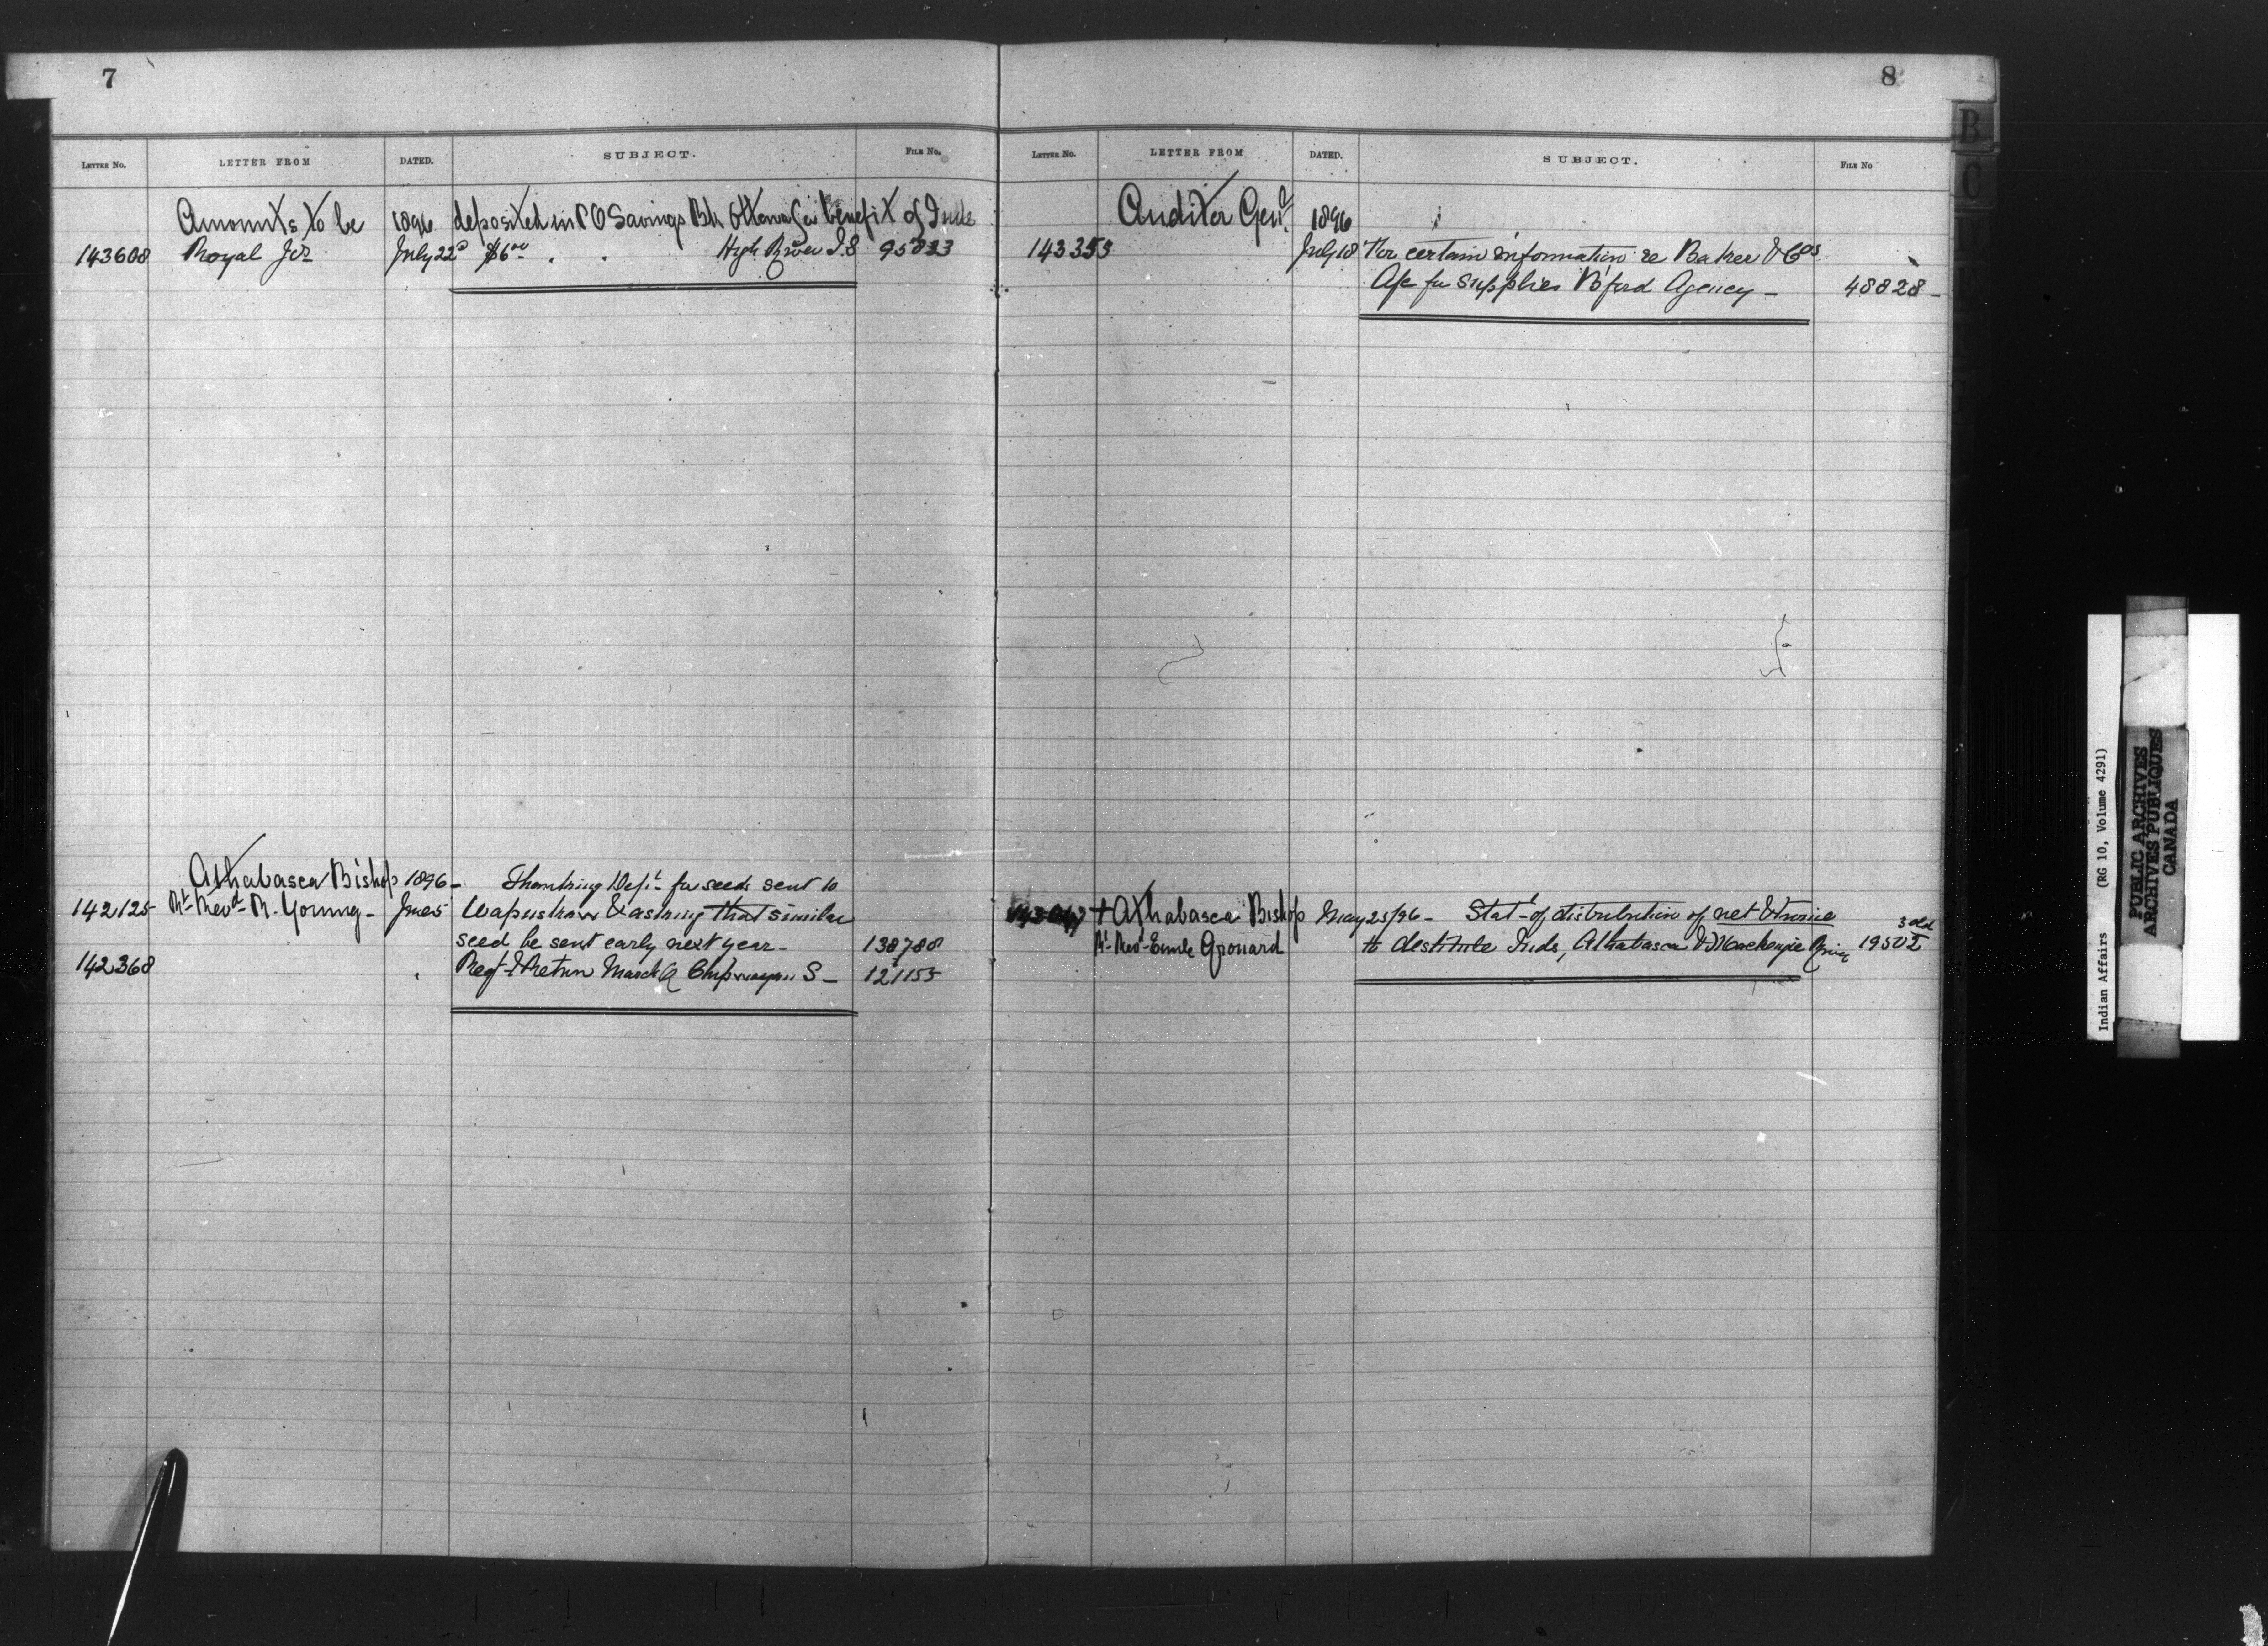 7
LETTER NO. LETTER FROM DATED. SUBJECT. FILE No.
Amounts to be 1896 deposited in P O Savings Bk Ottawa for benefit of Inds
143608 Royal Jos July 22d $6.00 " " High River I.S 95833
Athabasca Bishop 1896 - Thanking Dept for seeds sent to
142125 Rt Revd R. Young - June 5 Wapuskaw & asking that similar
seed be sent early next year - 138788
142368 " Regt & Return March Q Chipwayan S - 121155
8
LETTER NO. LETTER FROM DATED. SUBJECT. FILE No
Auditor Genl. 1896
143353 July 18 For certain information re Baker & Cos
A/c for supplies B'ford Agency - 48828 -
† Athabasca Bishop May 25/96 - Stat- of distribution of net & twine 3 old
Rt Revd Emile Grouard to destitute Inds, Athabasca & Mackenzie River 19502
B
C
Indian Affairs (RG 10, Volume 4291)
PUBLIC ARCHIVES
ARCHIVES PUBLIQUES
CANADA